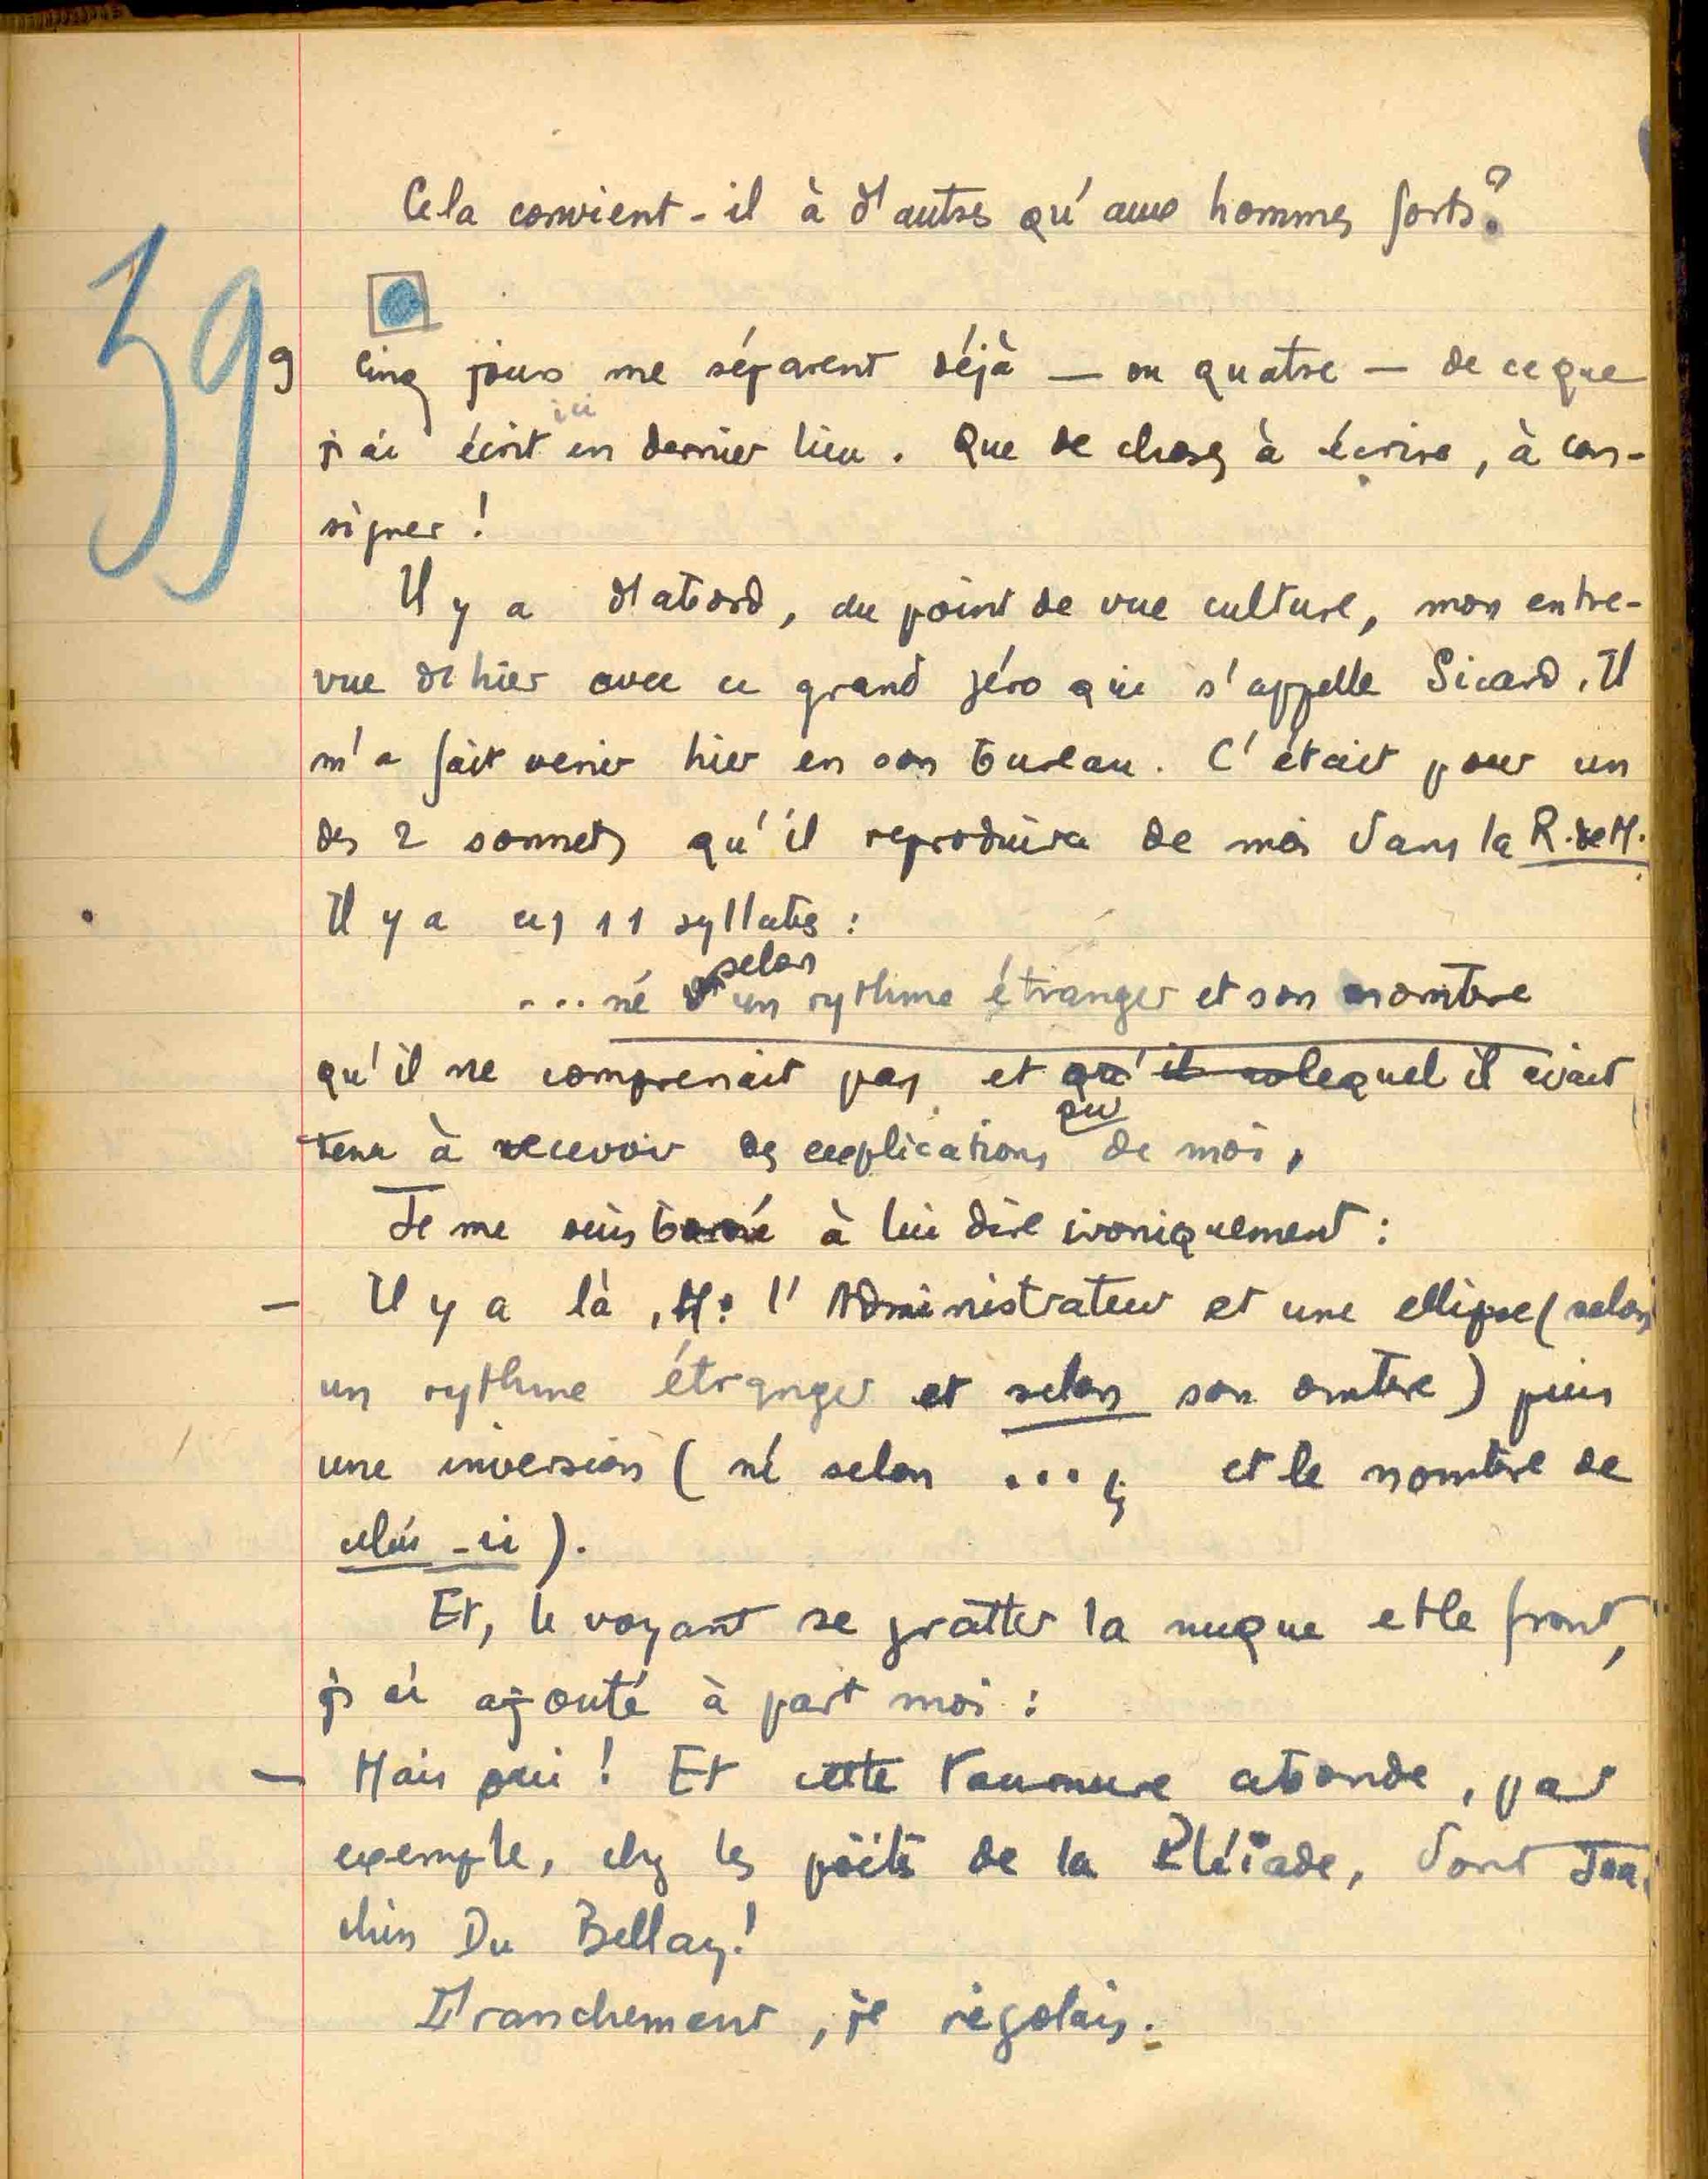 Cela convient-il à d'autres qu'aux hommes forts?
39
9 Cinq jours me séparent déjà — ou quatre — de ce que
j'ai écrit ici en dernier lieu. Que de choses à écrire, à con-
signer!
Il y a d'abord, du point de vue culture, mon entre-
vue d'hier avec ce grand zéro qui s'appelle Sicard. Il
m'a fait venir hier en son bureau. C'était pour un
des 2 sonnets qu'il reproduira de moi dans la R. de M.
Il y a ces 11 syllabes :
selon
... né un rythme étranger et son nombre
qu'il ne comprenait pas et qu'il lequel il avait
sur
tenu à recevoir des explications de moi.
Je me suis borné à lui dire ironiquement :
— Il y a là, M. l'Administrateur et une ellipse (selon
un rythme étranger et selon son ombre) puis
une inversion (né selon ... ; et le nombre de
celui-ci).
Et, le voyant se gratter la nuque et le front,
j'ai ajouté à part moi :
— Mais oui! Et cette abonde, par
exemple, chez les poëtes de la Pléïade, dont Joa-
chin Du Bellay!
Franchement, je rigolais.